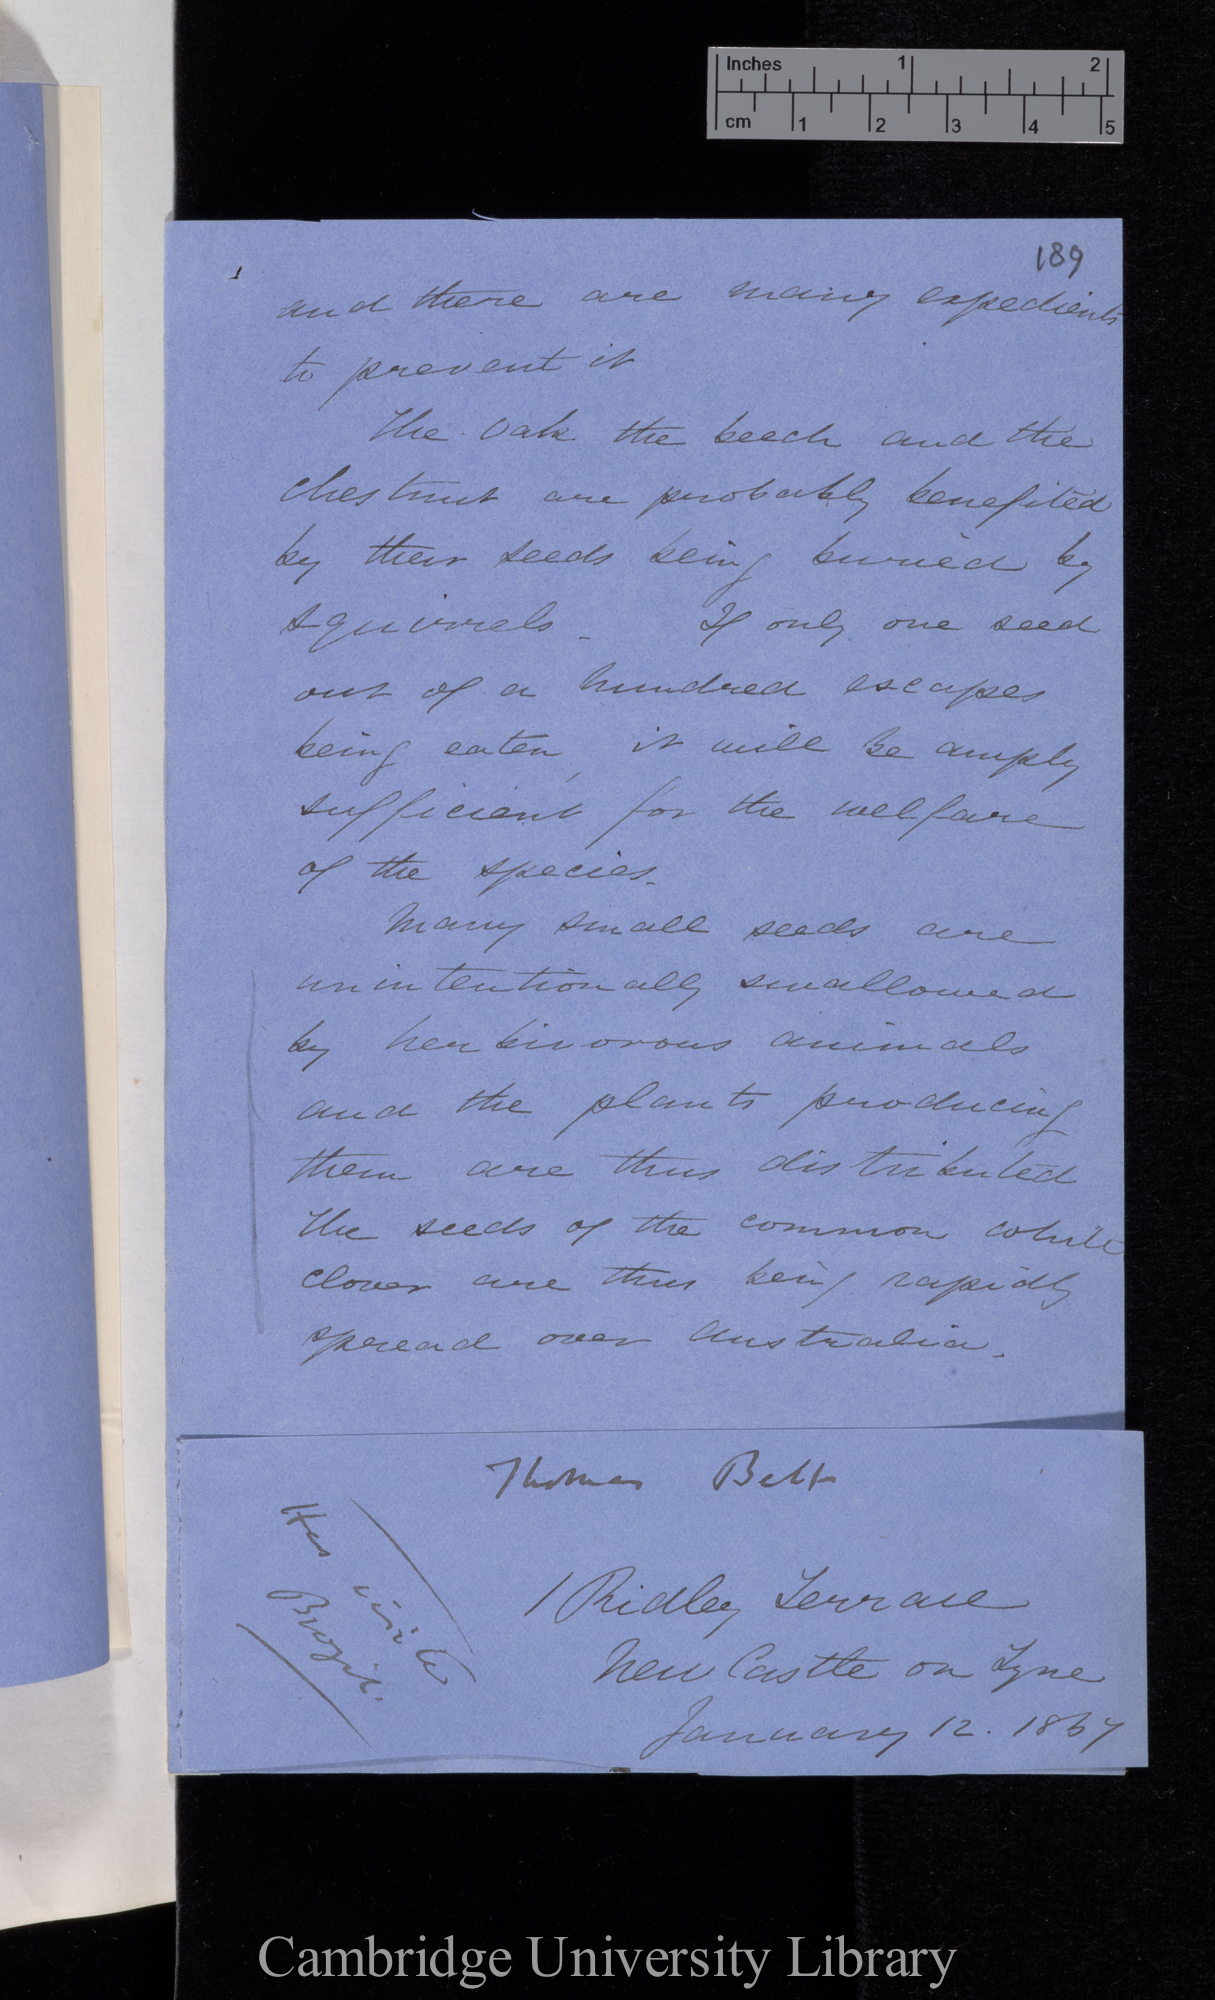 Inches 1 2
cm 1 2 3 4 5
189
and there are many expedients
to prevent it
The Oak the beech and the
chestnut are probably benefited
by their seeds being buried by
squirrels. If only one seed
out of a hundred escapes
being eaten, it will be amply
sufficient for the welfare
of the species.
Many small seeds are
unintentionally swallowed
by herbivorous animals
and the plants producing
them are thus distributed
The seeds of the common white
clover are thus being rapidly
spread over Australia.
Thomas Belt
Has visited
Brazil.
1 Ridley Terrace
New Castle on Tyne
January 12. 1867
Cambridge University Library